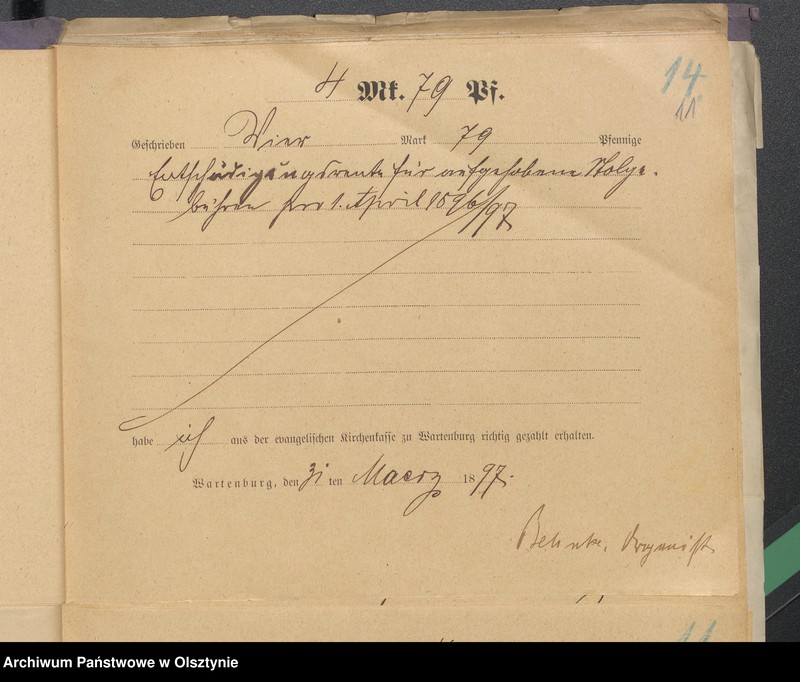 14
11
4 Mk. 79 Pf.
Geschrieben Vier Mark 79 Pfennige
Entschädigungsrente für aufgehobene Stolge-
bühren pro 1. April 1896/97
habe ich aus der evangelischen Kirchenkasse zu Wartenburg richtig gezahlt erhalten.
Wartenburg, den 31 ten Maerz 1897.
Behnke, Organist
11
Archiwum Państwowe w Olsztynie